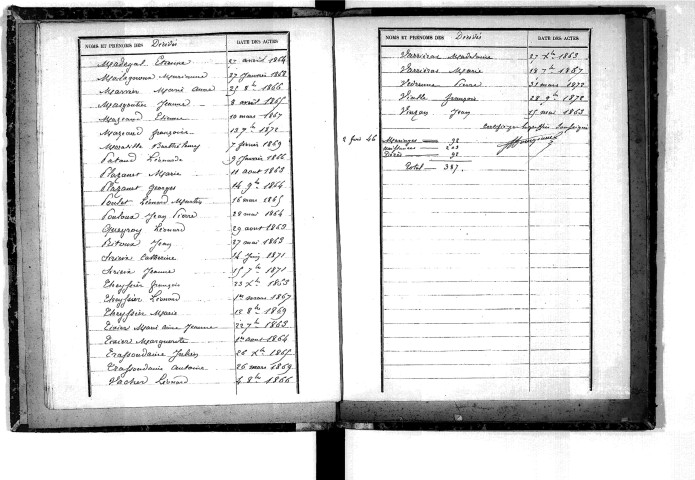 NOMS ET PRÉNOMS DES Décédés DATE DES ACTES
Madegal Etienne 27 avril 1864
Malagnoux Marianne 27 Janvier 1868
Marrien Marie Anne 25 8bre 1866
Margoutier Jeanne 8 avril 1865
Mazeaud Etienne 10 mars 1867
Mazeaud françoise 13 7bre 1872
Maratille Barthélemy 7 février 1869
Pataud Léonarde 9 Janvier 1866
Plazanet Marie 11 aout 1863
Plazanet Georges 14 9bre 1864
Poulet Léonard Martin 16 mars 1865
Pouloux Jean Pierre 28 mai 1864
Queyroy Léonard 29 aout 1863
Ritoux Jean 27 mai 1863
Sirieix Catherine 14 Juin 1871
Sirieix Jeanne 15 7bre 1871
Theyssier françois 23 Xbre 1863
Theyssier Léonard 1er mars 1867
Theyssier Marie 13 8bre 1869
Texier Marie anne Jeanne 22 7bre 1863
Texier Marguerite 1er aout 1864
Trassoudaine Julien 26 Xbre 1865
Trassoudaine Antoine 26 mars 1869
Vacher Léonard 4 8bre 1866
NOMS ET PRÉNOMS DES Décédés DATE DES ACTES
Varrieras Madeleine 27 Xbre 1863
Varrieras Marie 18 7bre 1867
Vedrenne Pierre 31 mars 1872
Vialle françois 28 9bre 1872
Vinzan Jean 15 mai 1863
2 fois 46
Mariages 92
Naissances 203
Décès 92
Total 387